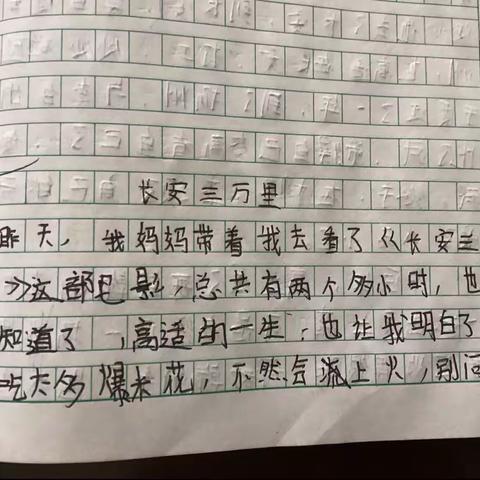 长安三万里
昨天，我妈妈带着我去看了《长安三
》这部电影，总共有两个多小时，也
知道了，高适的一生，也让我明白了
吃太多爆米花，不然会流上火，别问